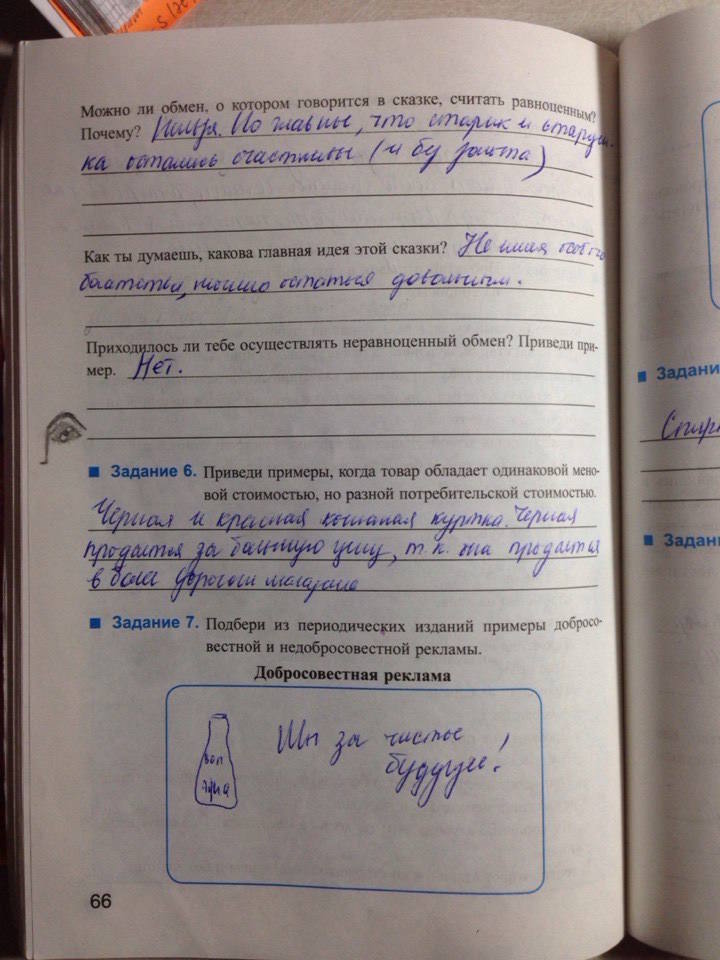 Можно ли обмен, о котором говорится в сказке, считать равноценным?
Почему? Нельзя. Но главное, что старик и старуш-
ка остались счастливы (и бу
Как ты думаешь, какова главная идея этой сказки? Не имея особого
богатства, можно остаться довольным.
Приходилось ли тебе осуществлять неравноценный обмен? Приведи при-
мер. Нет.
■ Задание 6. Приведи примеры, когда товар обладает одинаковой мено-
вой стоимостью, но разной потребительской стоимостью.
Черная и красная кожаная куртка. Черная
продается за большую цену, т.к. она продается
в более дорогом магазине
■ Задание 7. Подбери из периодических изданий примеры добросо-
вестной и недобросовестной рекламы.
Добросовестная реклама
Мы за чистое
будущее!
66
■ Задани
■ Задани